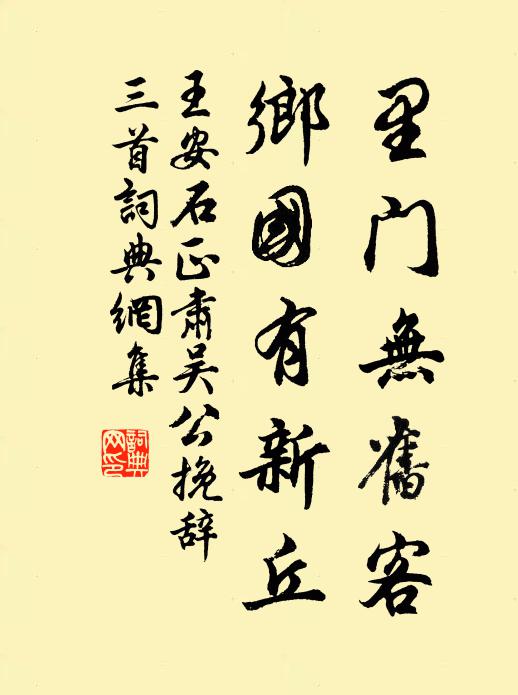 里门無舊客
鄉國有新丘
王安石正肅吴公挽辞
三首詞典網集
詞典網印